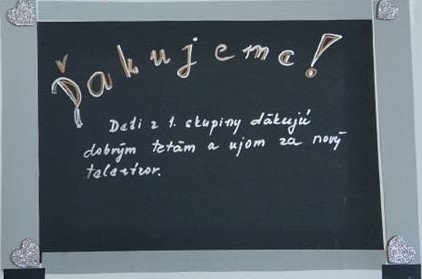 Ďakujeme!
Deti z 1. skupiny ďakujú
dobrým tetám a ujom za nový
televízor.